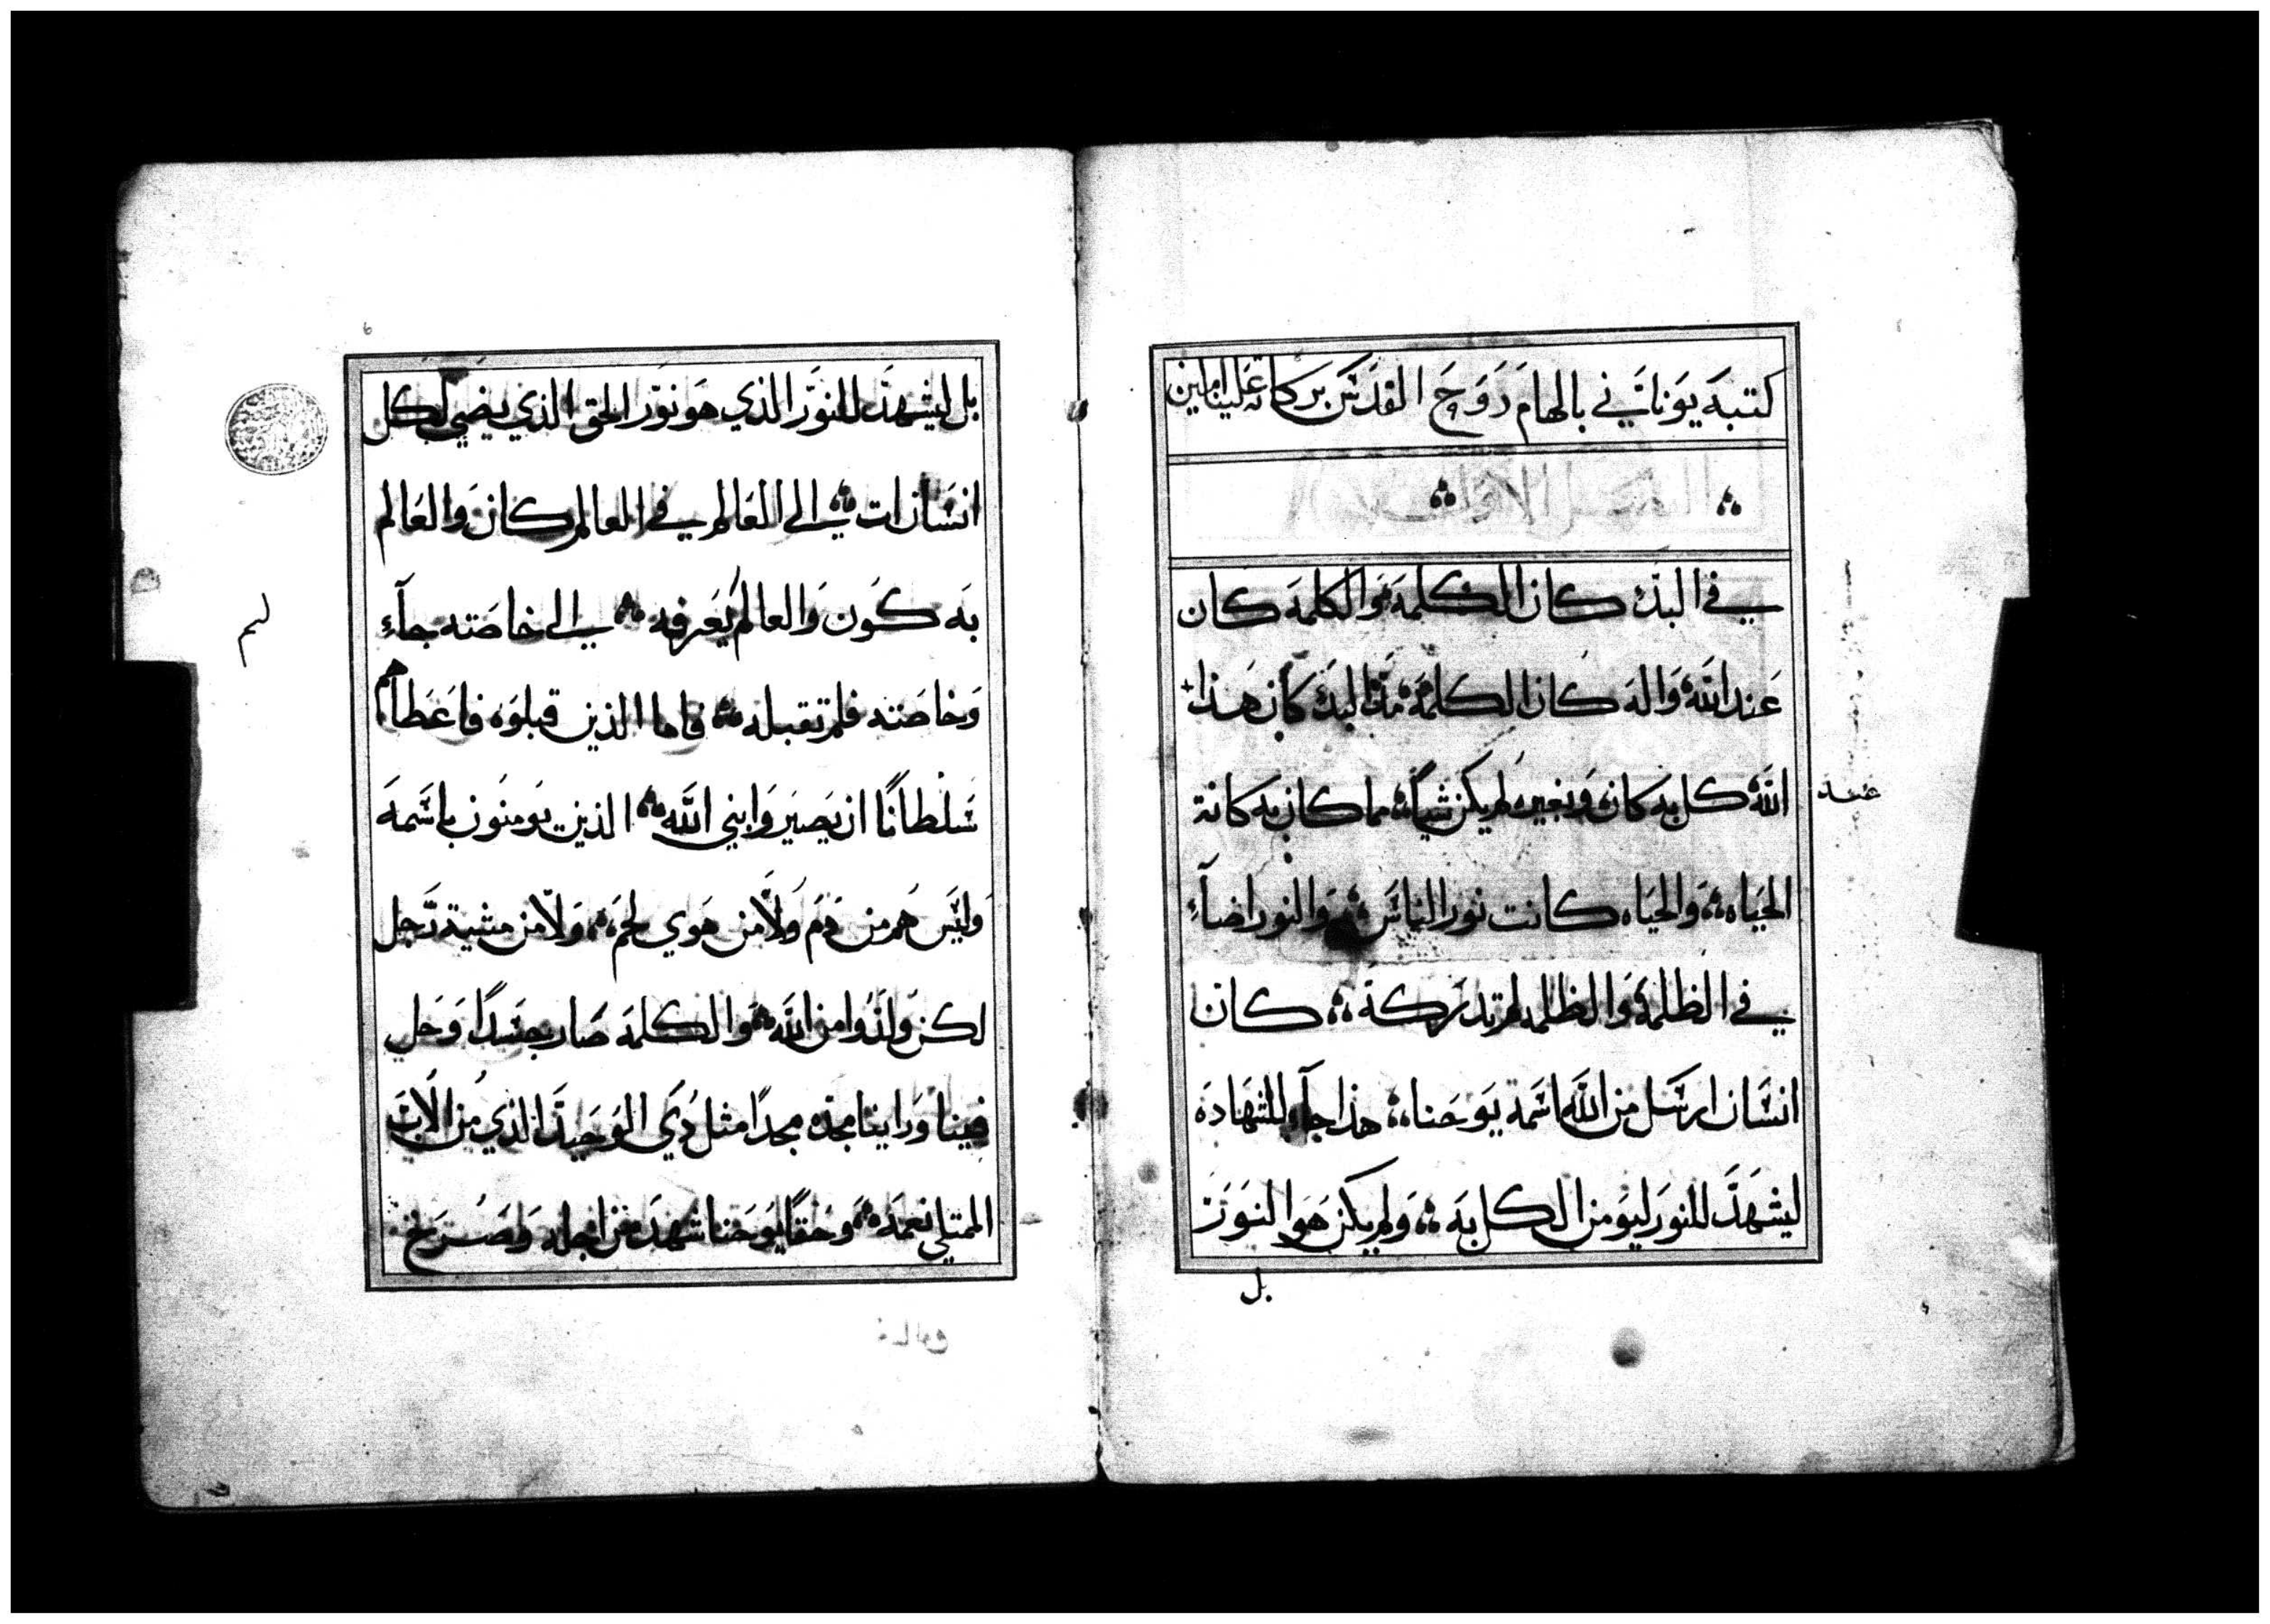 كتبه يوناني بالهام روح القدس بركاته علينا امين
الفصل الاول
في البدء كان الكلمة والكلمة كان
عند الله واله كان الكلمة هذا البدء كان هذا
عند
الله كل به كان وبغيره لم يكن شياء مما كان به كانة
الحياه والحياه كانت نور الناس والنور اضاء
في الظلمة والظلمه لم تدركة كان
انسان ارسل من الله اسمه يوحنا هذا جاء للشهادة
ليشهد للنور ليومن الكل به ولم يكن هو النور
بل
بل ليشهد للنور الذي هو نور الحق الذي يضي لكل
انسان ات الى العالم في العالم كان والعالم
به كون والعالم لم يعرفه الى خاصته جاء
وخاصته فلم تقبله فاما الذين قبلوه فاعطاهم
سلطانا ان يصيروا بني الله الذين يومنون باسمه
وليس هم من دم ولا من هوي لحم ولا من مشية رجل
لكن ولدوا من الله والكلمه صار جسدا وحل
فينا وراينا مجده مجدا مثل ذي الوحيد الذي من الاب
الممتلي نعمه وحقا يوحنا شهد من اجله وصرخ